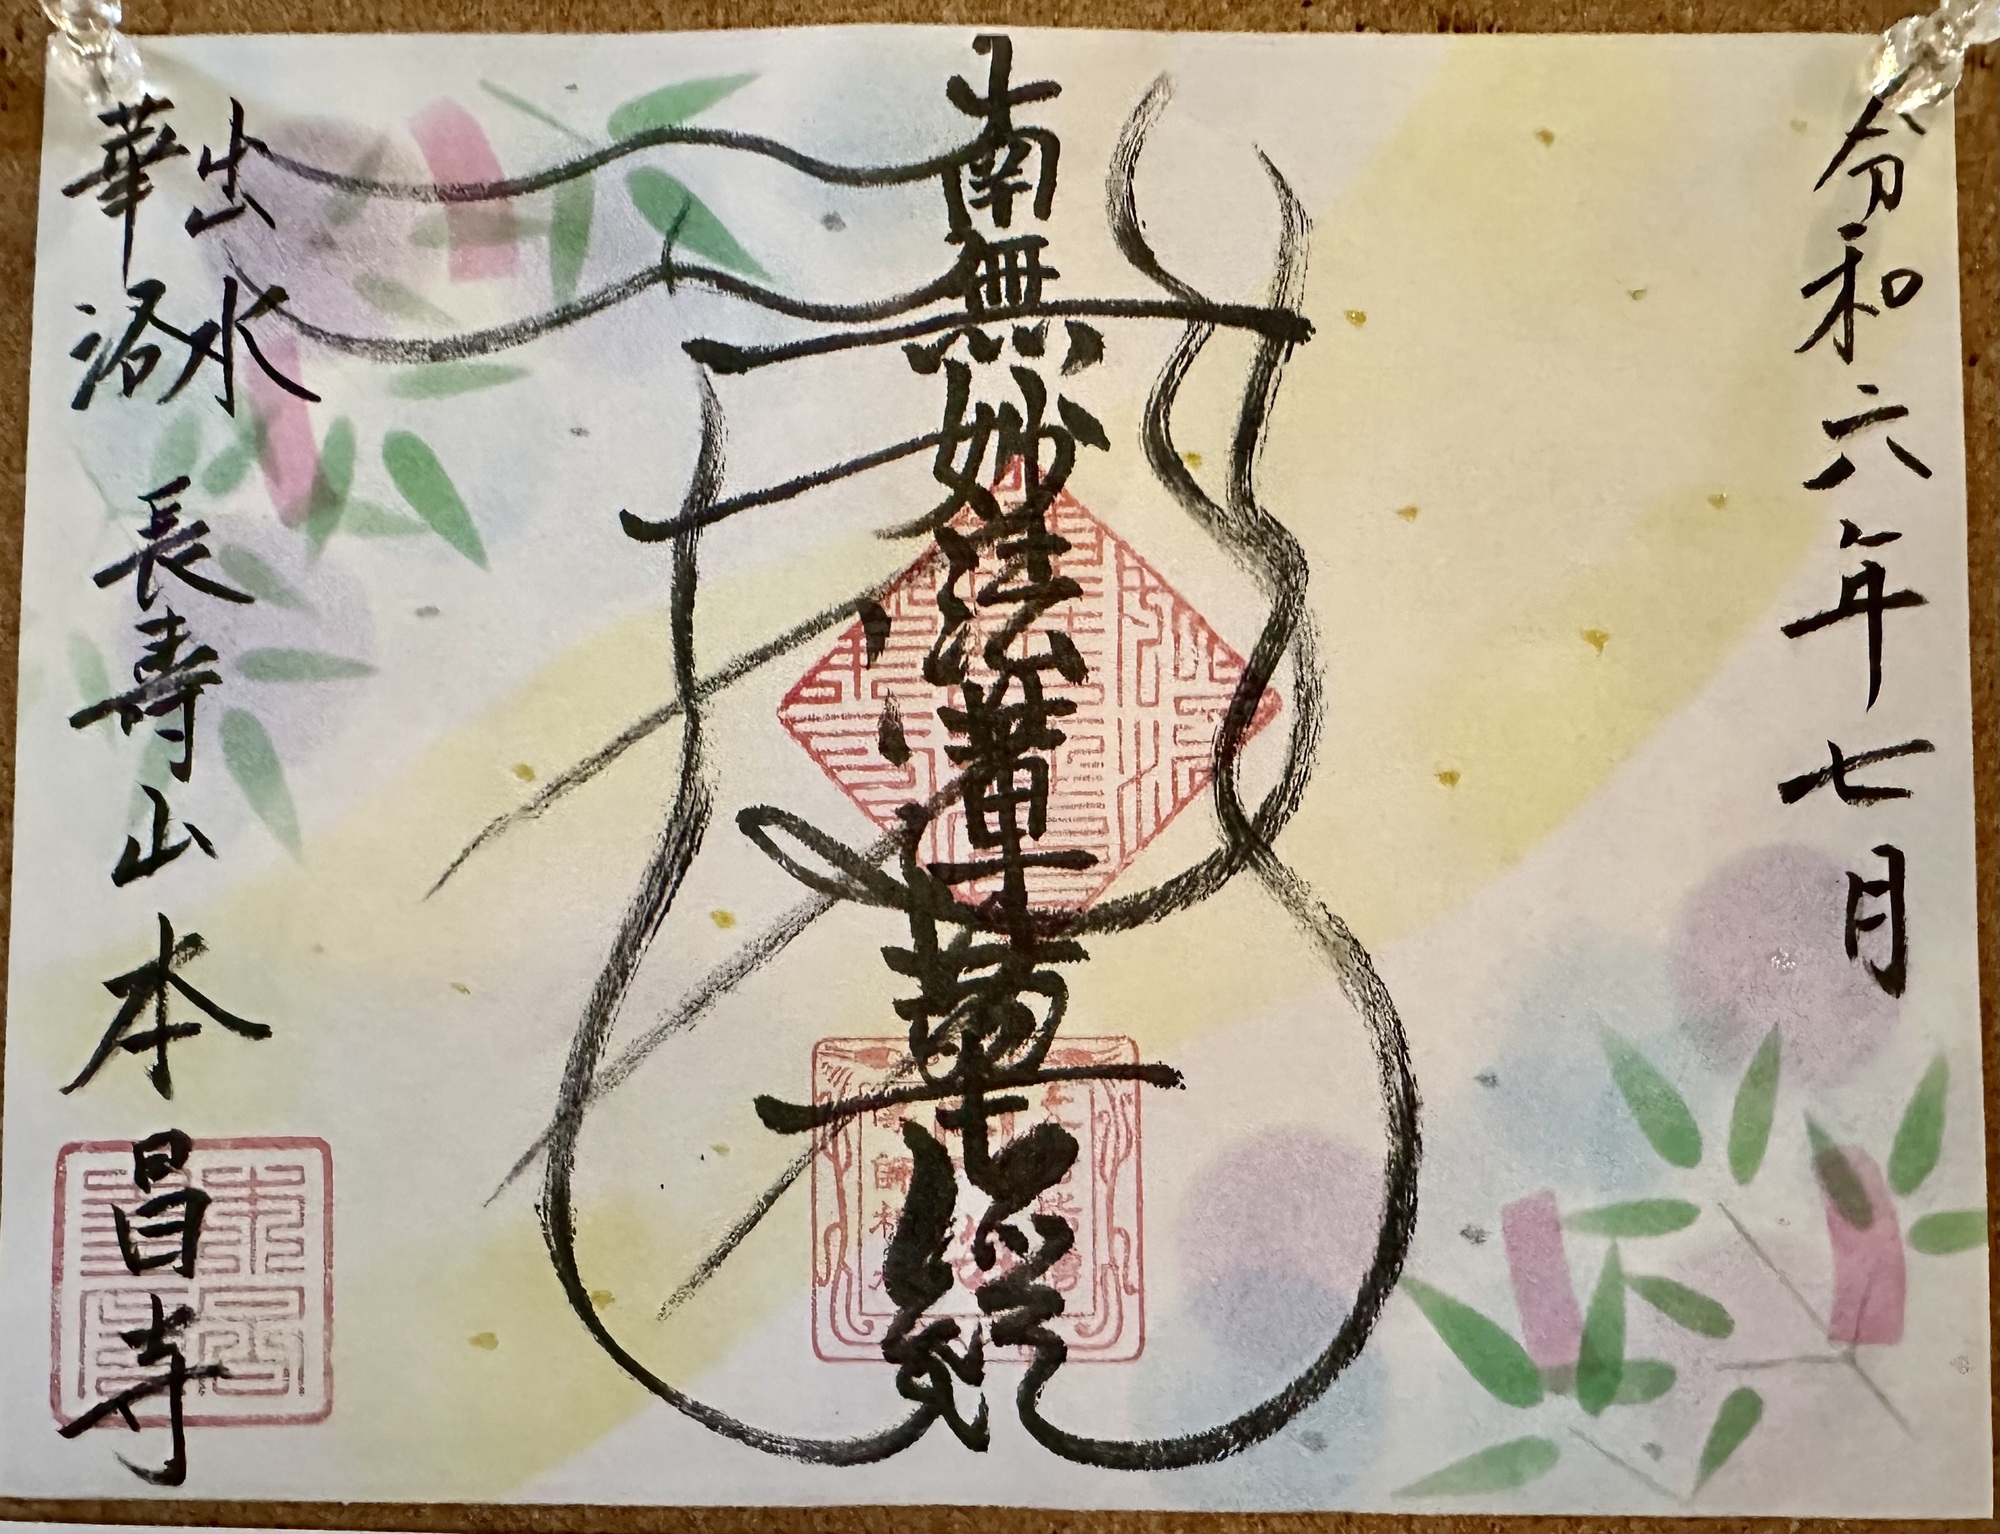 令和六年七月
南無妙法蓮華経
出水
華洛 長壽山 本昌寺